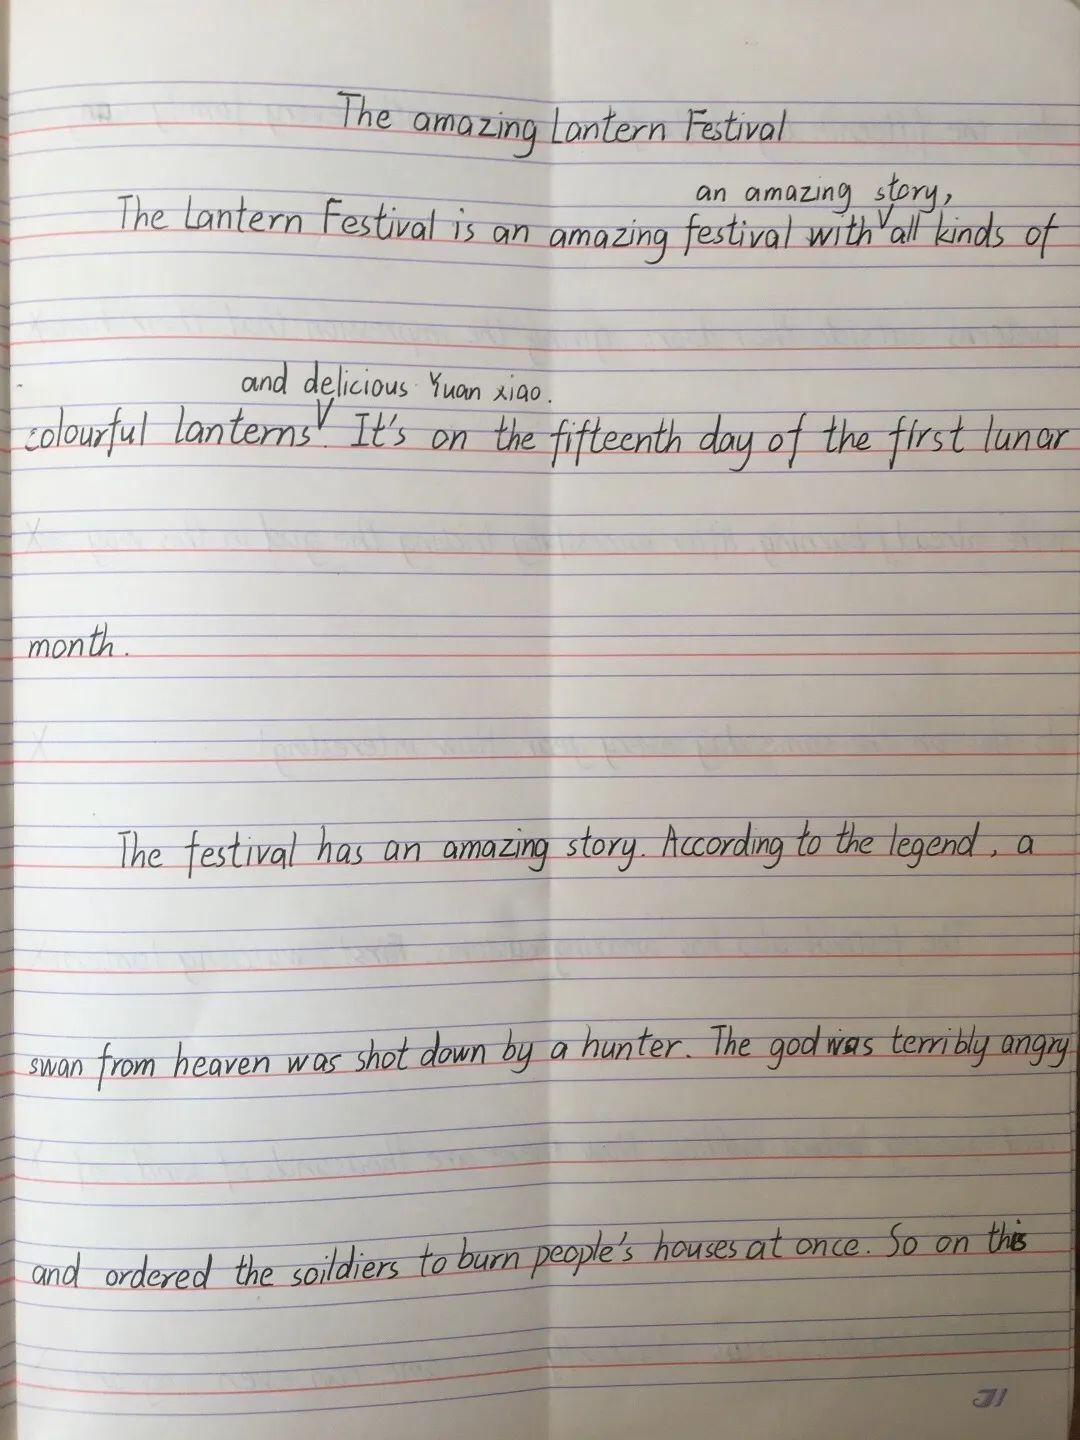 The amazing Lantern Festival
an amazing story,
The Lantern Festival is an amazing festival with all kinds of
and delicious Yuan xiao.
colourful lanterns. It's on the fifteenth day of the first lunar
month.
The festival has an amazing story. According to the legend, a
swan from heaven was shot down by a hunter. The god was terribly angry
and ordered the soildiers to burn people's houses at once. So on this